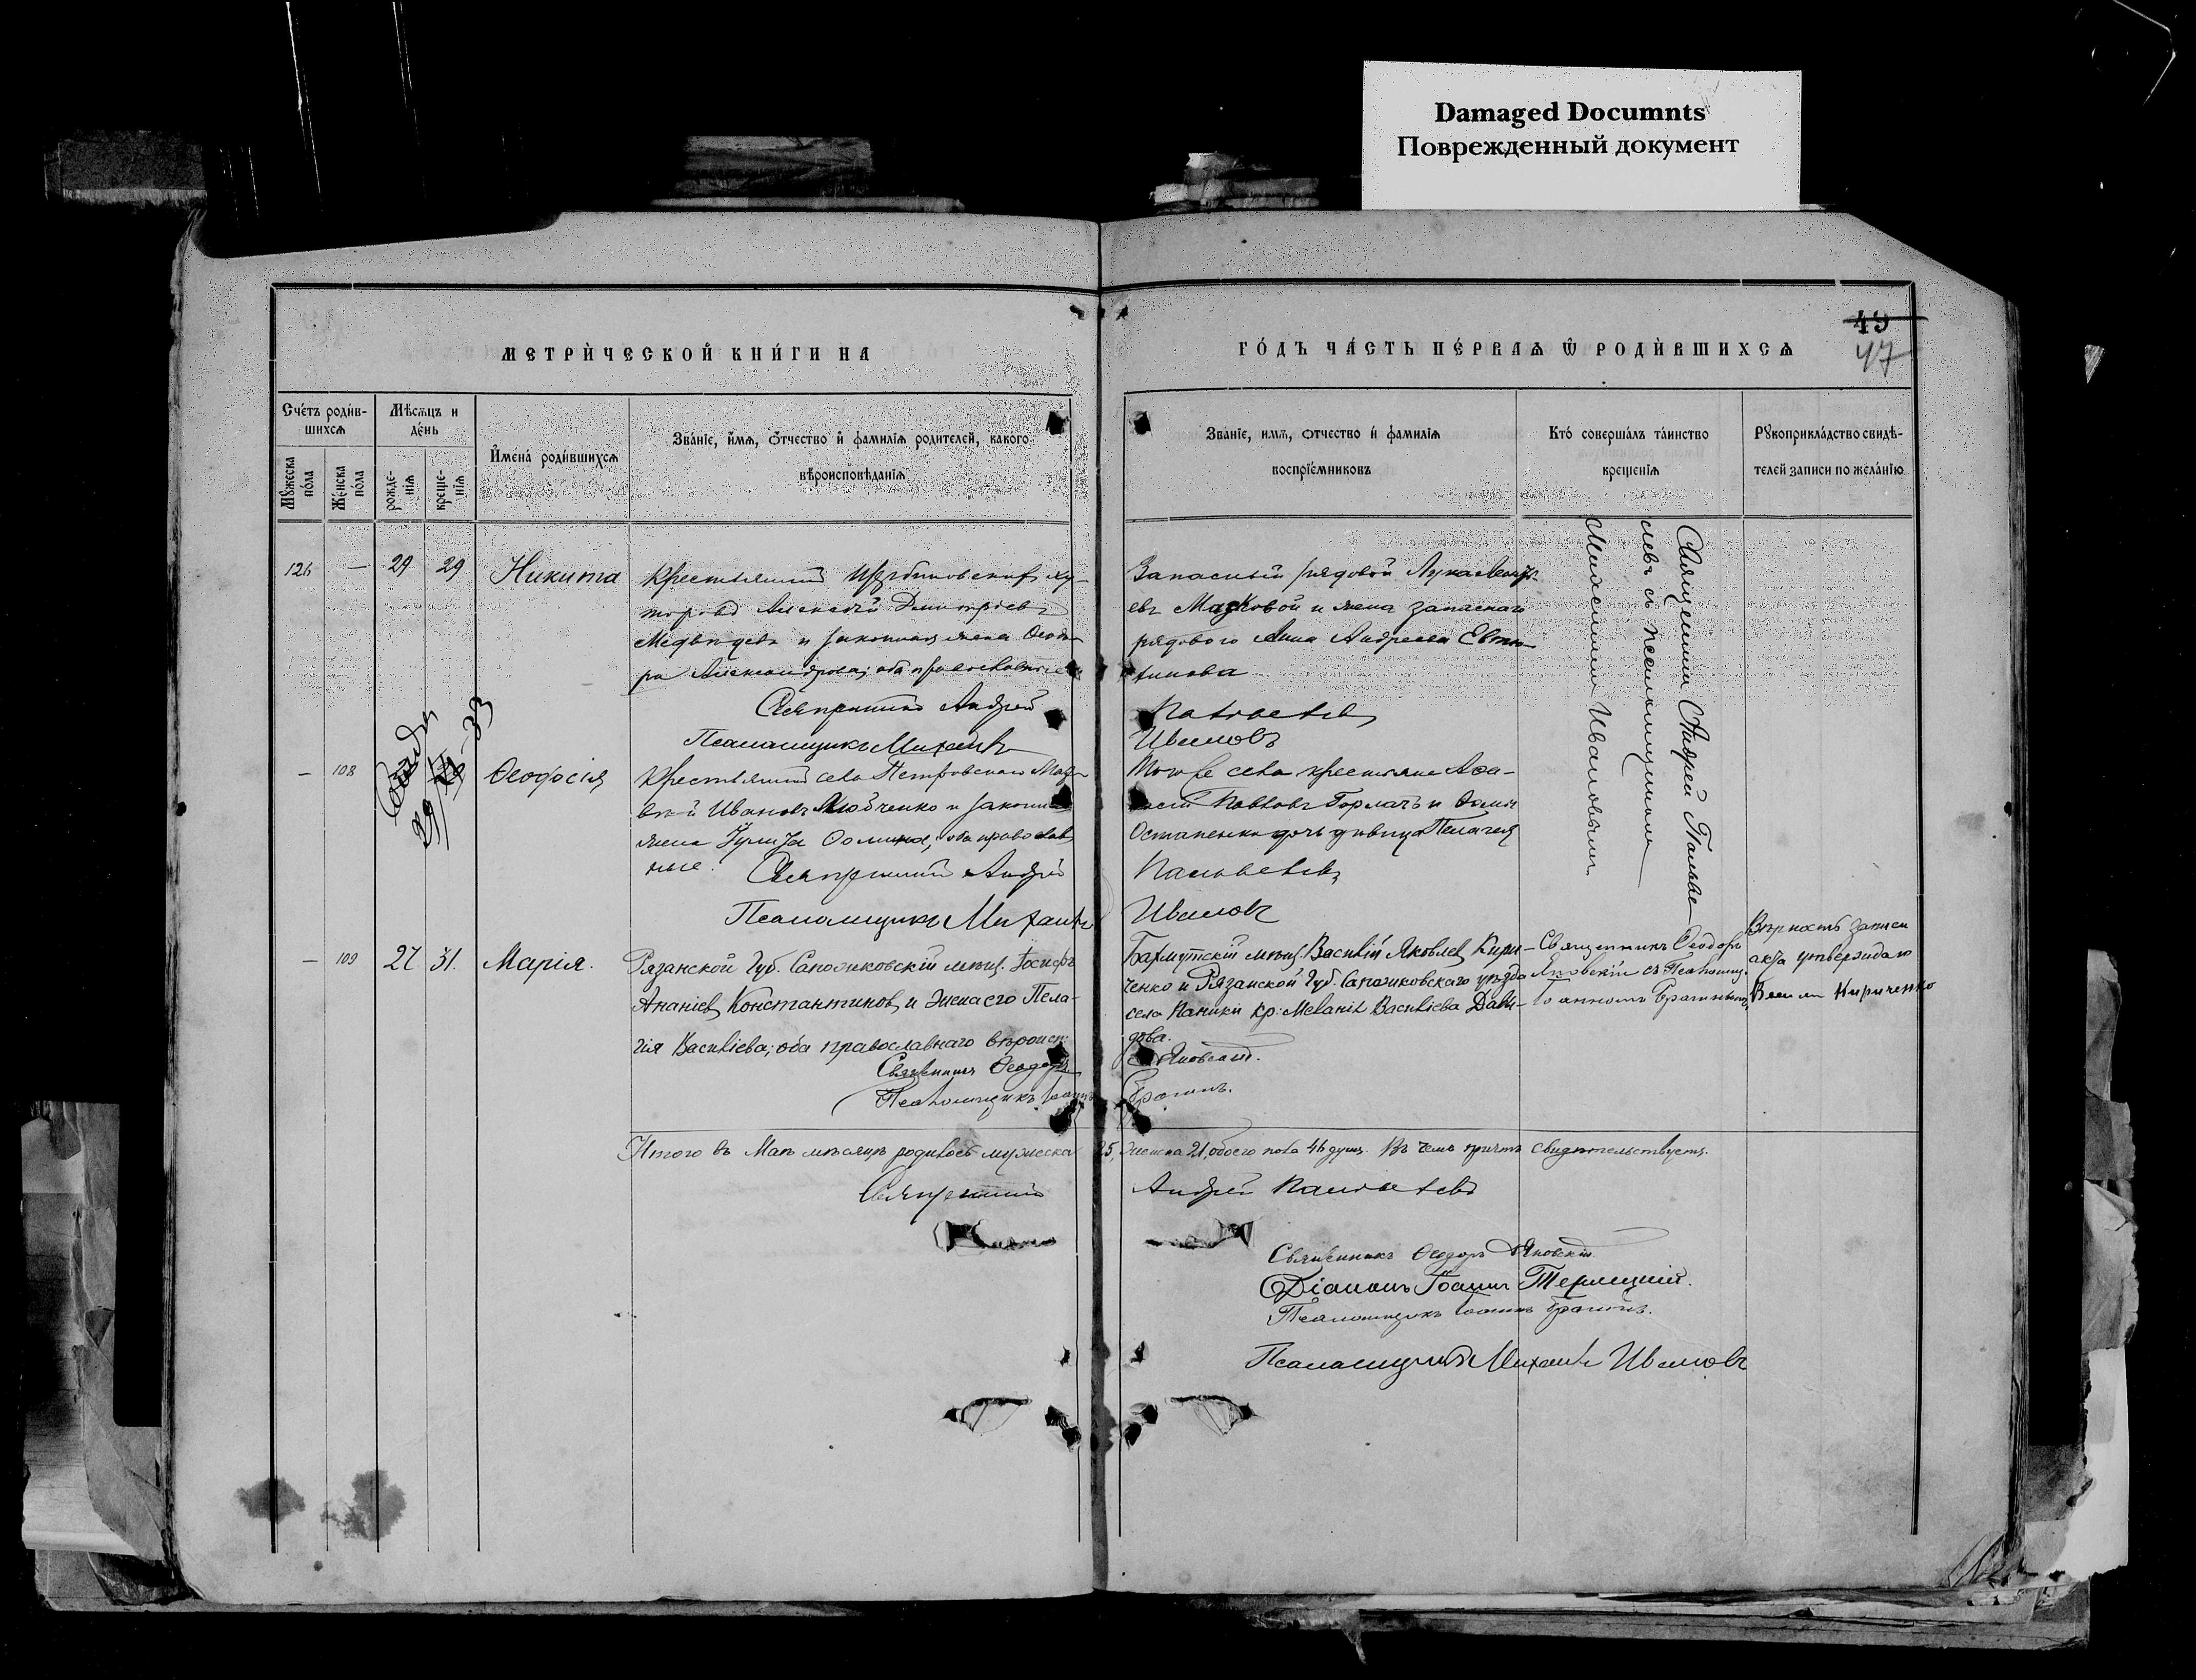 Damaged Documnts
Поврежденный документ
49
47
МЕТРИ́ЧЕСКОЙ КНИ́ГИ НА
ГО́ДЪ ЧА́СТЬ ПЕ́РВАѦ Ѡ҆ РОДИ́ВШИХСѦ
Сче́тъ роди́в-
шихсѧ
Мꙋ́жеска по́ла
Же́нска по́ла
Мѣ́сѧцъ и де́нь
рожде-нїѧ
креще-нїѧ
И҆мена̀ роди́вшихсѧ
Зва́нїе, и҆́мѧ, ѻ҆́тчество и҆ фамилїѧ родителей, какого
вѣроисповѣданїѧ
Зва́нїе, имѧ, ѻтчество и҆ фамилїѧ
воспрїе́мниковъ
Кто́ соверша́лъ та́инство
крещенїѧ
Рꙋкоприкла́дство свидѣ́-
телей записи по жела́нїю
126 — 29 29 Никита
Крестьянинъ Щербиновскихъ ху-
торовъ Алексѣй Димитріевъ
Медвѣдевъ и законная жена Ѳеодо-
ра Александрова; оба православные
Священникъ Андрей
Псаломщикъ Михаилъ
Запасный рядовой Лука
евъ Мазковой и жена запаснаго
рядового Анна Андреева Евтю-
Иванов
Священникъ Андрей
съ псаломщикомъ
Михаиломъ Ивановымъ
— 108 Ѳеодосія
Крестьянинъ села Петровскаго Мат-
вѣй Ивановъ и законная
жена Ѳомина; оба православ
ные.
Священникъ Андрей
Псаломщикъ Михаилъ
Того же села крестьяне Аѳа-
насій Павловъ Горлачъ и Ѳомы
Остапенка дочь дѣвица Пелагея
Ивановъ
— 109 27 31. Марія.
Рязанской Губ. Сапожковскій мѣщ. Іосифъ
Ананіевъ Константиновъ и жена его Пела-
гія Василіева; оба православнаго вѣроисп.
Священникъ Ѳеодоръ
Псаломщикъ Іоаннъ
Бахмутскій мѣщ. Василій Яковлев Кири-
ченко и Рязанской Губ. Сапожковскаго уѣзда
села Каники кр. Меланія Василіева Давы-
дова.
Яновскій.
Брагинъ.
Священникъ Ѳеодоръ
Яновскій съ Псаломщ.
Іоанномъ Брагинымъ
Вѣрность записи
акта утверждаю
Васили Кириченко
Итого въ Маѣ мѣсяцѣ родилось мужеска 25, женска 21, обоего пола 46 душъ. Въ чемъ причтъ свидѣтельствуетъ.
Священникъ Андрей
Священникъ Ѳеодоръ Яновскій.
Діаконъ Іоаннъ Терлецкій.
Псаломщикъ Іоаннъ Брагинъ.
Псаломщикъ Михаилъ Ивановъ